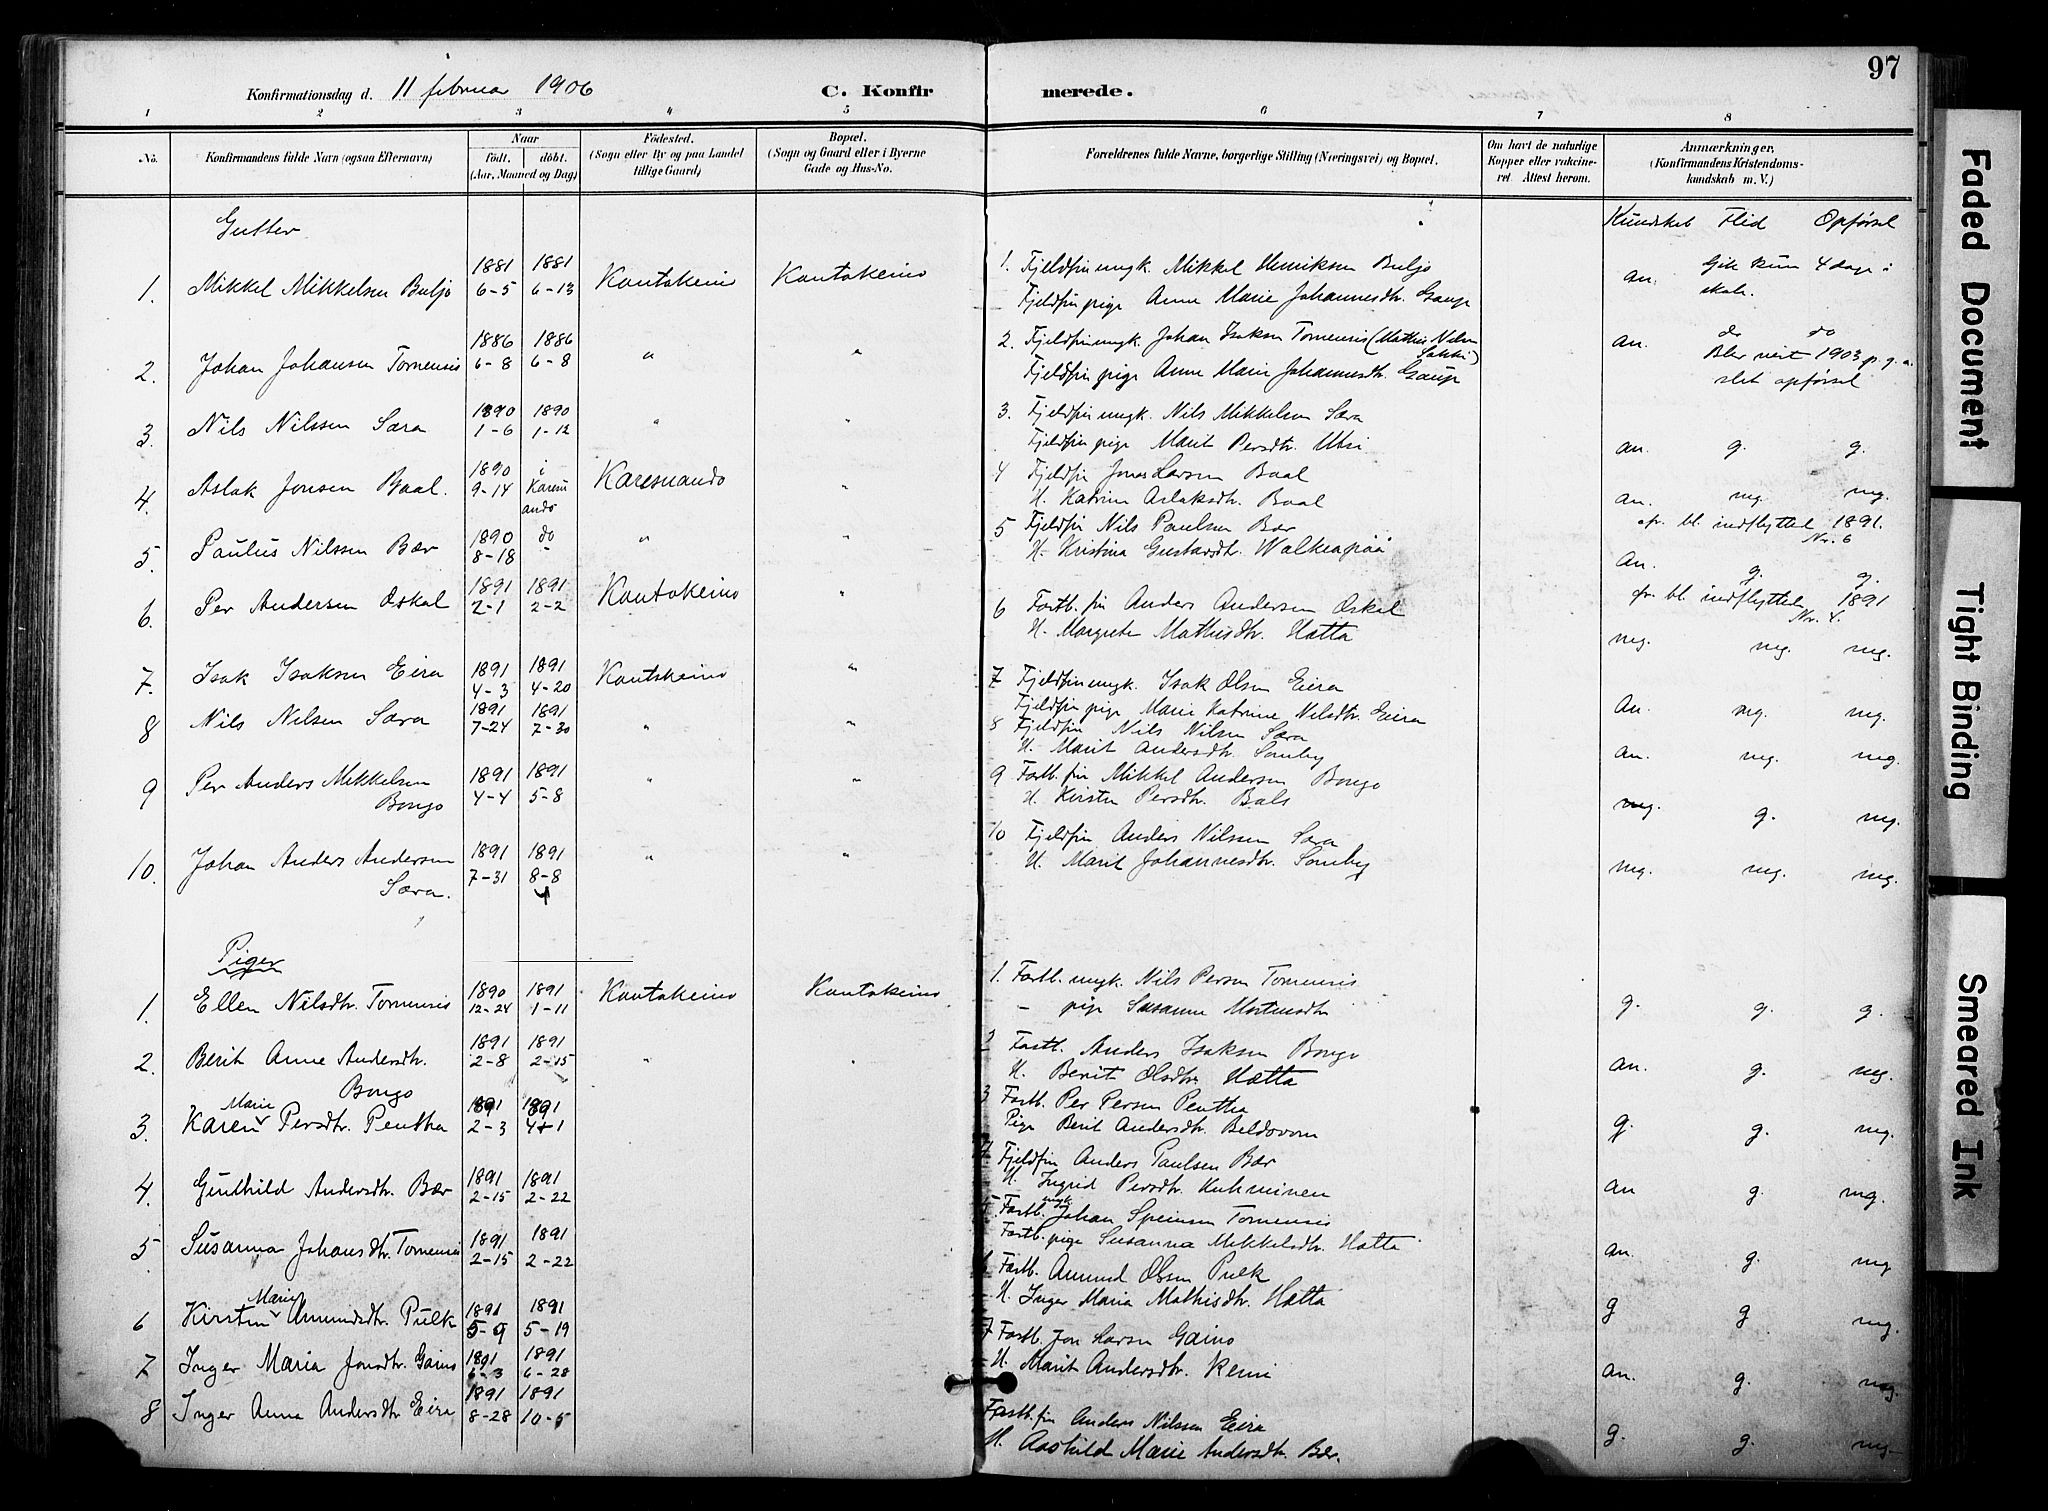 97
Konfirmationsdag d. 11 februar 1906
C. Konfirmerede.
1 2 3 4 5 6 7 8
No.
Konfirmandens fulde Navn (ogsaa Efternavn)
Naar
født. døbt.
(Aar, Maaned og Dag)
Fødested.
(Sogn eller By og paa Landet
tillige Gaard)
Bopæl.
(Sogn og Gaard eller i Byerne
Gade og Hus-No.
Forældrenes fulde Navne, borgerlige Stilling (Næringsvei) og Bopæl.
Om havt de naturlige
Kopper eller vakcine-
ret Attest herom.
Anmærkninger.
(Konfirmandens Kristendoms-
kundskab m. V.)
Gutter
Kundskab Flid Opførsel
1. Mikkel Mikkelsen Buljo 1881 6-5 1881 6-13 Kautokeino Kautokeino
1. Fjeldfin ungk. Mikkel Henriksen Buljo
Fjeldfin pige Anne Marie Johannesdtr. Gaup
an. Gik kun 4 dage i
skole.
2. Johan Johansen Tornensis 1886 6-8 1886 6-8 " "
2. Fjeldfin ungk. Johan Isaksen Tornensis (Mathis Nilsen
Sokki)
Fjeldfin pige Anne Marie Johannesdtr. Gaup
an. do do
Blev vist 1903 p. g. a.
slet opførsel
3. Nils Nilssen Sara 1890 1-6 1890 1-12 " "
3. Fjeldfin ungk. Nils Mikkelsen Sara
Fjeldfin pige Marit Persdtr. Utsi
an. g. g.
4. Aslak Jonsen Baal. 1890 9-14 i Karesuando Karesuando "
4 Fjeldfin Jonas Larsen Baal
H. Katrine Aslaksdtr. Baal
an. mg. mg.
cfr. bl. indflyttede 1891.
Nr. 6
5. Paulus Nilssen Bær 1890 8-18 do " "
5 Fjeldfin Nils Paulsen Bær
H. Kristina Gustavsdtr. Walkeapää
An. g. g.
cfr. bl. indflyttede 1891
Nr. 4.
6. Per Andersen Oskal 1891 2-1 1891 2-2 Kautokeino "
6 Fastb. fin Anders Andersen Oskal
H. Margrete Mathisdtr. Hætta
mg. mg. mg.
7. Isak Isaksen Eira 1891 4-3 1891 4-20 Kautokeino "
7 Fjeldfin ungk. Isak Olsen Eira
Fjeldfin pige Marie Katrine Nilsdtr. Eira
An. mg. mg.
8 Nils Nilsen Sara 1891 7-24 1891 7-30 " "
8 Fjeldfin Nils Nilsen Sara
H. Marit Andersdtr. Somby
an. mg. mg.
9 Per Anders Mikkelsen
Bongo 1891 4-4 1891 5-8 " "
9 Fastb. fin Mikkel Andersen Bongo
H. Kirsten Persdtr. Bals
mg. g. mg.
10. Johan Anders Andersen
Sara. 1891 7-31 1891 8-8 " "
10 Fjeldfin Anders Nilssen Sara
H. Marit Johannesdtr. Somby
mg. mg. mg.
Piger
1. Ellen Nilsdtr. Tornensis 1890 12-24 1891 1-11 Kautokeino Kautokeino
1. Fastb. ungk. Nils Persen Tornensis
- pige Susanne Mortensdtr
g. g. g.
2. Berit Anne Andersdtr.
Bongo 1891 2-8 1891 2-15 " "
2 Fastb. Anders Isaksen Bongo
H. Berit Olsdtr. Hætta
an. g. mg.
3. Karen Marie Persdtr. Pentha 1891 2-3 1891 4-1
3 Fastb. Per Persen Pentha
Pige Berit Andersdtr. Beldovom
g. g. mg.
4. Gunhild Andersdtr. Bær 1891 2-15 1891 2-22
4 Fjeldfin Anders Paulsen Bær
H. Ingrid Persdtr. Kuhminen
an g. mg.
5. Susanna Johansdtr. Tornensis 1891 2-15 1891 2-22
5. Fastb. ungk. Johan Speinsen Tornensis
Fastb. pige Susanna Mikkelsdtr. Hætta
an. g. mg
6 Kirsten Marie Amundsdtr. Pulk 1891 5-9 1891 5-19
6 Fastb. Amund Olsen Pulk
H. Inger Maria Mathisdtr. Hætta
g g mg.
7 Inger Maria Jonsdtr. Gaino 1891 6-3 1891 6-28
7 Fastb. Jon Larsen Gaino
H. Marit Andersdtr. Kemi
an. g. mg.
8 Inger Anna Andersdtr Eira 1891 8-28 1891 10-5
Fastb. fin Anders Nilssen Eira
H. Aashild Marie Andersdtr. Bær.
g. g. mg
Faded Document
Tight Binding
Smeared Ink